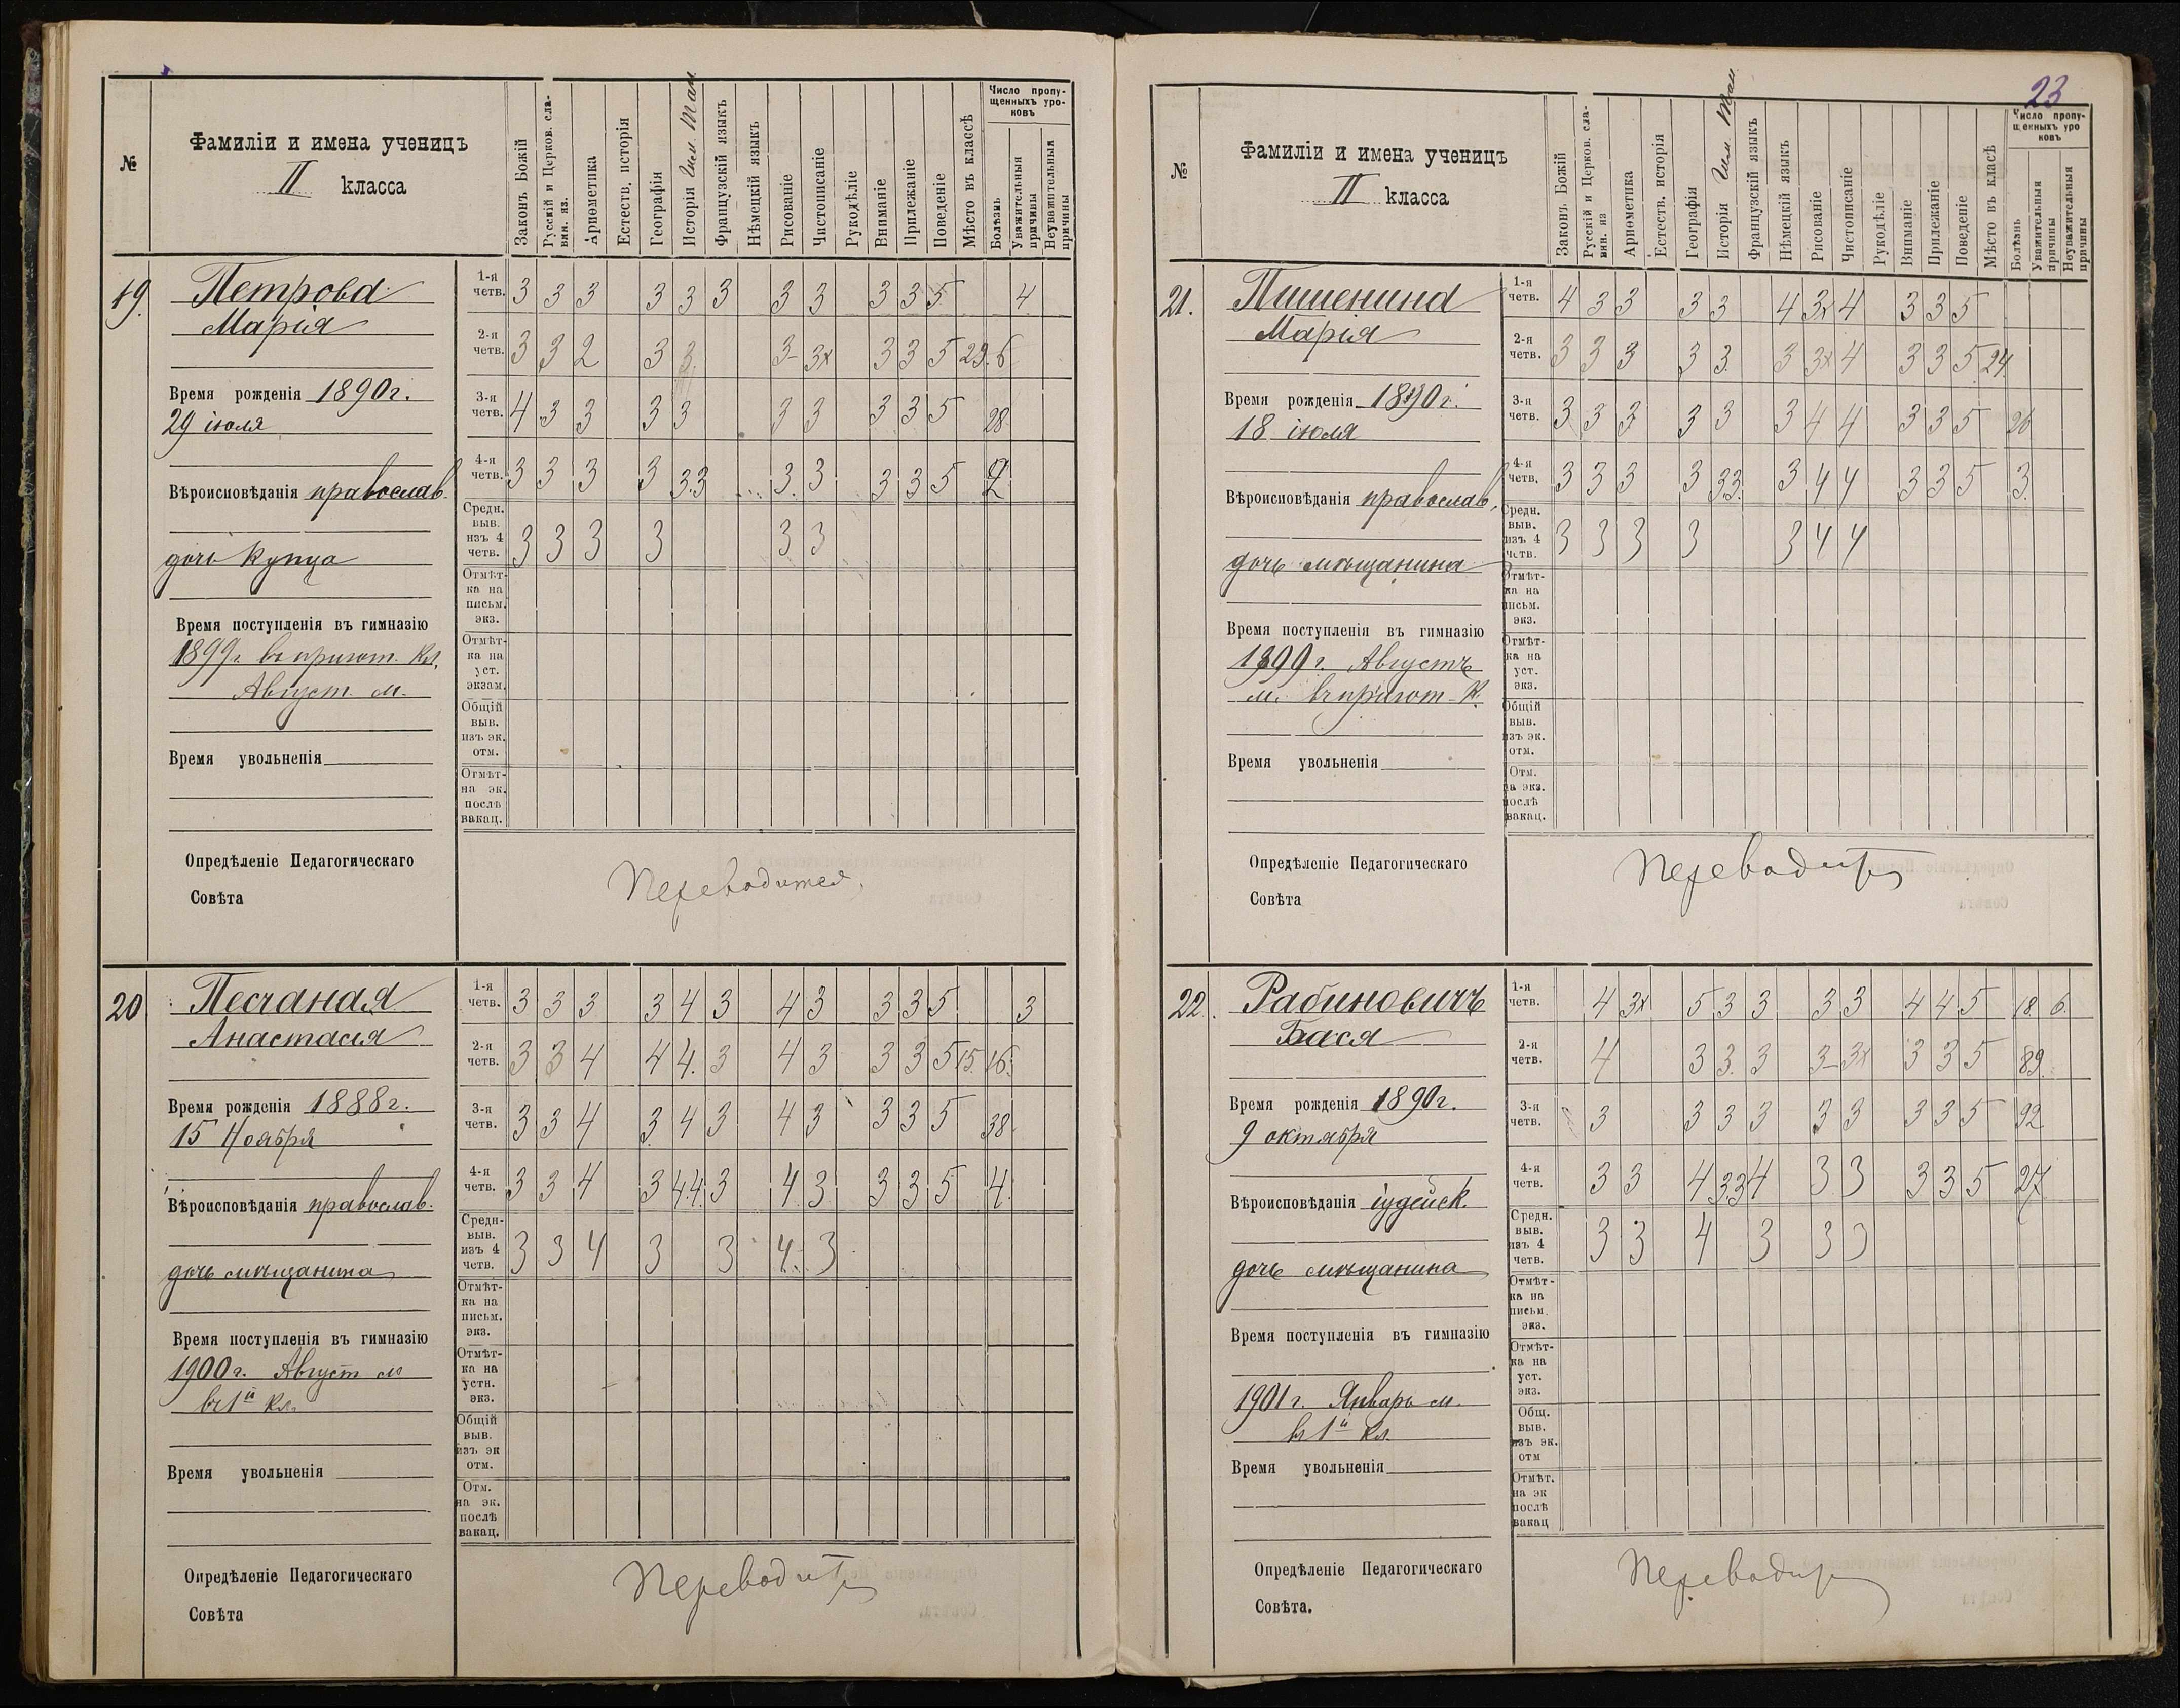 №
Фамиліи и имена ученицъ
II класса
Законъ Божій
Русскій и Церков. сла-
вян. яз.
Ариѳметика
Естеств. исторія
Географія
Исторія
Французскій языкъ
Нѣмецкій языкъ
Рисованіе
Чистописаніе
Рукодѣліе
Вниманіе
Прилежаніе
Поведеніе
Мѣсто въ классѣ
Число пропу-
щенныхъ уро-
ковъ
Болѣзнь
Уважительныя
причины
Неуважительныя
причины
19.
Петрова
Марія
Время рожденія 1890 г.
29 іюля
Вѣроисповѣданія православ.
дочь купца
Время поступленія въ гимназію
1899 г. въ пригот. кл.
Август. м.
Время увольненія
1-я четв. 3 3 3 3 3 3 3 3 3 3 5 4
2-я четв. 3 3 2 3 3 3- 3х 3 3 5 29. 6
3-я четв. 4 3 3 3 3 3 3 3 3 5 28
4-я четв. 3 3 3 3 3.3 3. 3 3 3 5
Средн. выв. изъ 4 четв. 3 3 3 3 3 3
Отмѣт-
ка на
письм.
экз.
Отмѣт-
ка на
уст.
экзам.
Общій
выв.
изъ эк.
отм.
Отмѣт-
на эк.
послѣ
вакац.
Опредѣленіе Педагогическаго
Совѣта
Переводится
20
Песчаная
Анастасія
Время рожденія 1888 г.
15 Ноября
Вѣроисповѣданія православ.
дочь мѣщанина
Время поступленія въ гимназію
1900 г. Август м
въ 1й кл.
Время увольненія
1-я четв. 3 3 3 3 4 3 4 3 3 3 5 3
2-я четв. 3 3 4 4 4. 3 4 3 3 3 5 15. 16.
3-я четв. 3 3 4 3 4 3 4 3 3 3 5 38
4-я четв. 3 3 4 3 4.4. 3 4. 3 3 3 5 4.
Средн- выв. изъ 4 четв. 3 3 4 3 3 4. 3
Отмѣт-
ка на
письм.
экз.
Отмѣт-
ка на
устн.
экз.
Общій
выв.
изъ эк
отм.
Отм.
на эк.
послѣ
вакац.
Опредѣленіе Педагогическаго
Совѣта
Переводит
23
№
Фамиліи и имена ученицъ
II класса
Законъ Божій
Русскій и Церков. сла-
вян. яз
Ариѳметика
Естеств. исторія
Географія
Исторія
Французскій языкъ
Нѣмецкій языкъ
Рисованіе
Чистописаніе
Рукодѣліе
Вниманіе
Прилежаніе
Поведеніе
Мѣсто въ класѣ
Число пропу-
щенныхъ уро
ковъ
Болѣзнь
Уважительныя
причины
Неуважительныя
причины
21.
Пшенина
Марія
Время рожденія 1890 г.
18 іюля
Вѣроисповѣданія православ.
дочь мѣщанина
Время поступленія въ гимназію
1899 г. Августъ
м. въ пригот. К.
Время увольненія
1-я четв. 4 3 3 3 3 4 3х 4 3 3 5
2-я четв. 3 3 3 3 3. 3 3х 4 3 3 5 24.
3-я четв. 3 3 3 3 3 3 4 4 3 3 5 26
4-я четв. 3 3 3 3 3.3. 3 4 4 3 3 5 3.
Средн. выв. изъ 4 четв. 3 3 3 3 3 4 4
Отмѣт-
ка на
письм.
экз.
Отмѣт-
ка на
уст.
экз.
Общій
выв.
изъ эк.
отм.
Отм.
на экз.
послѣ
вакац.
Опредѣленіе Педагогическаго
Совѣта
Переводит
22.
Рабиновичъ
Бася
Время рожденія 1890 г.
9 октября
Вѣроисповѣданія іудейск.
дочь мѣщанина
Время поступленія въ гимназію
1901 г. Январь м.
въ 1й кл.
Время увольненія
1-я четв. 4 3х 5 3 3 3 3 4 4 5 18 6.
2-я четв. 4 3 3. 3 3- 3х 3 3 5 89.
3-я четв. 3 3 3 3 3 3 3 3 5 92
4-я четв. 3 3 4 3.3 4 3 3 3 3 5 27
Средн. выв. изъ 4 четв. 3 3 4 3 3 3
Отмѣт-
ка на
письм.
экз.
Отмѣт-
ка на
уст.
экз.
Общ.
выв.
изъ эк.
отм
Отмѣт.
на эк
послѣ
вакац
Опредѣленіе Педагогическаго
Совѣта.
Переводит